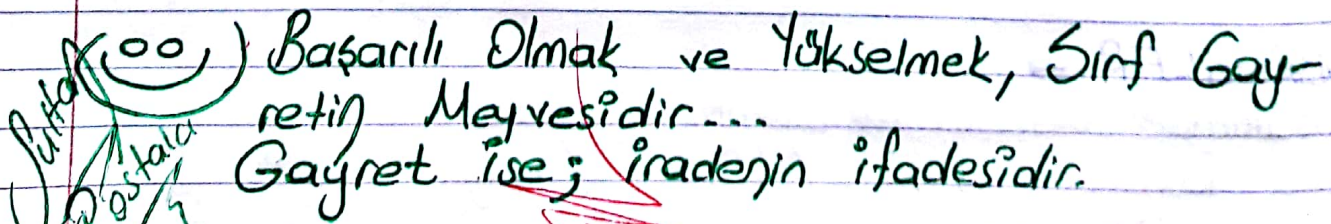 Başarılı Olmak ve Yükselmek, Sırf Gay-
retin Meyvesidir...
Gayret ise; iradenin ifadesidir.